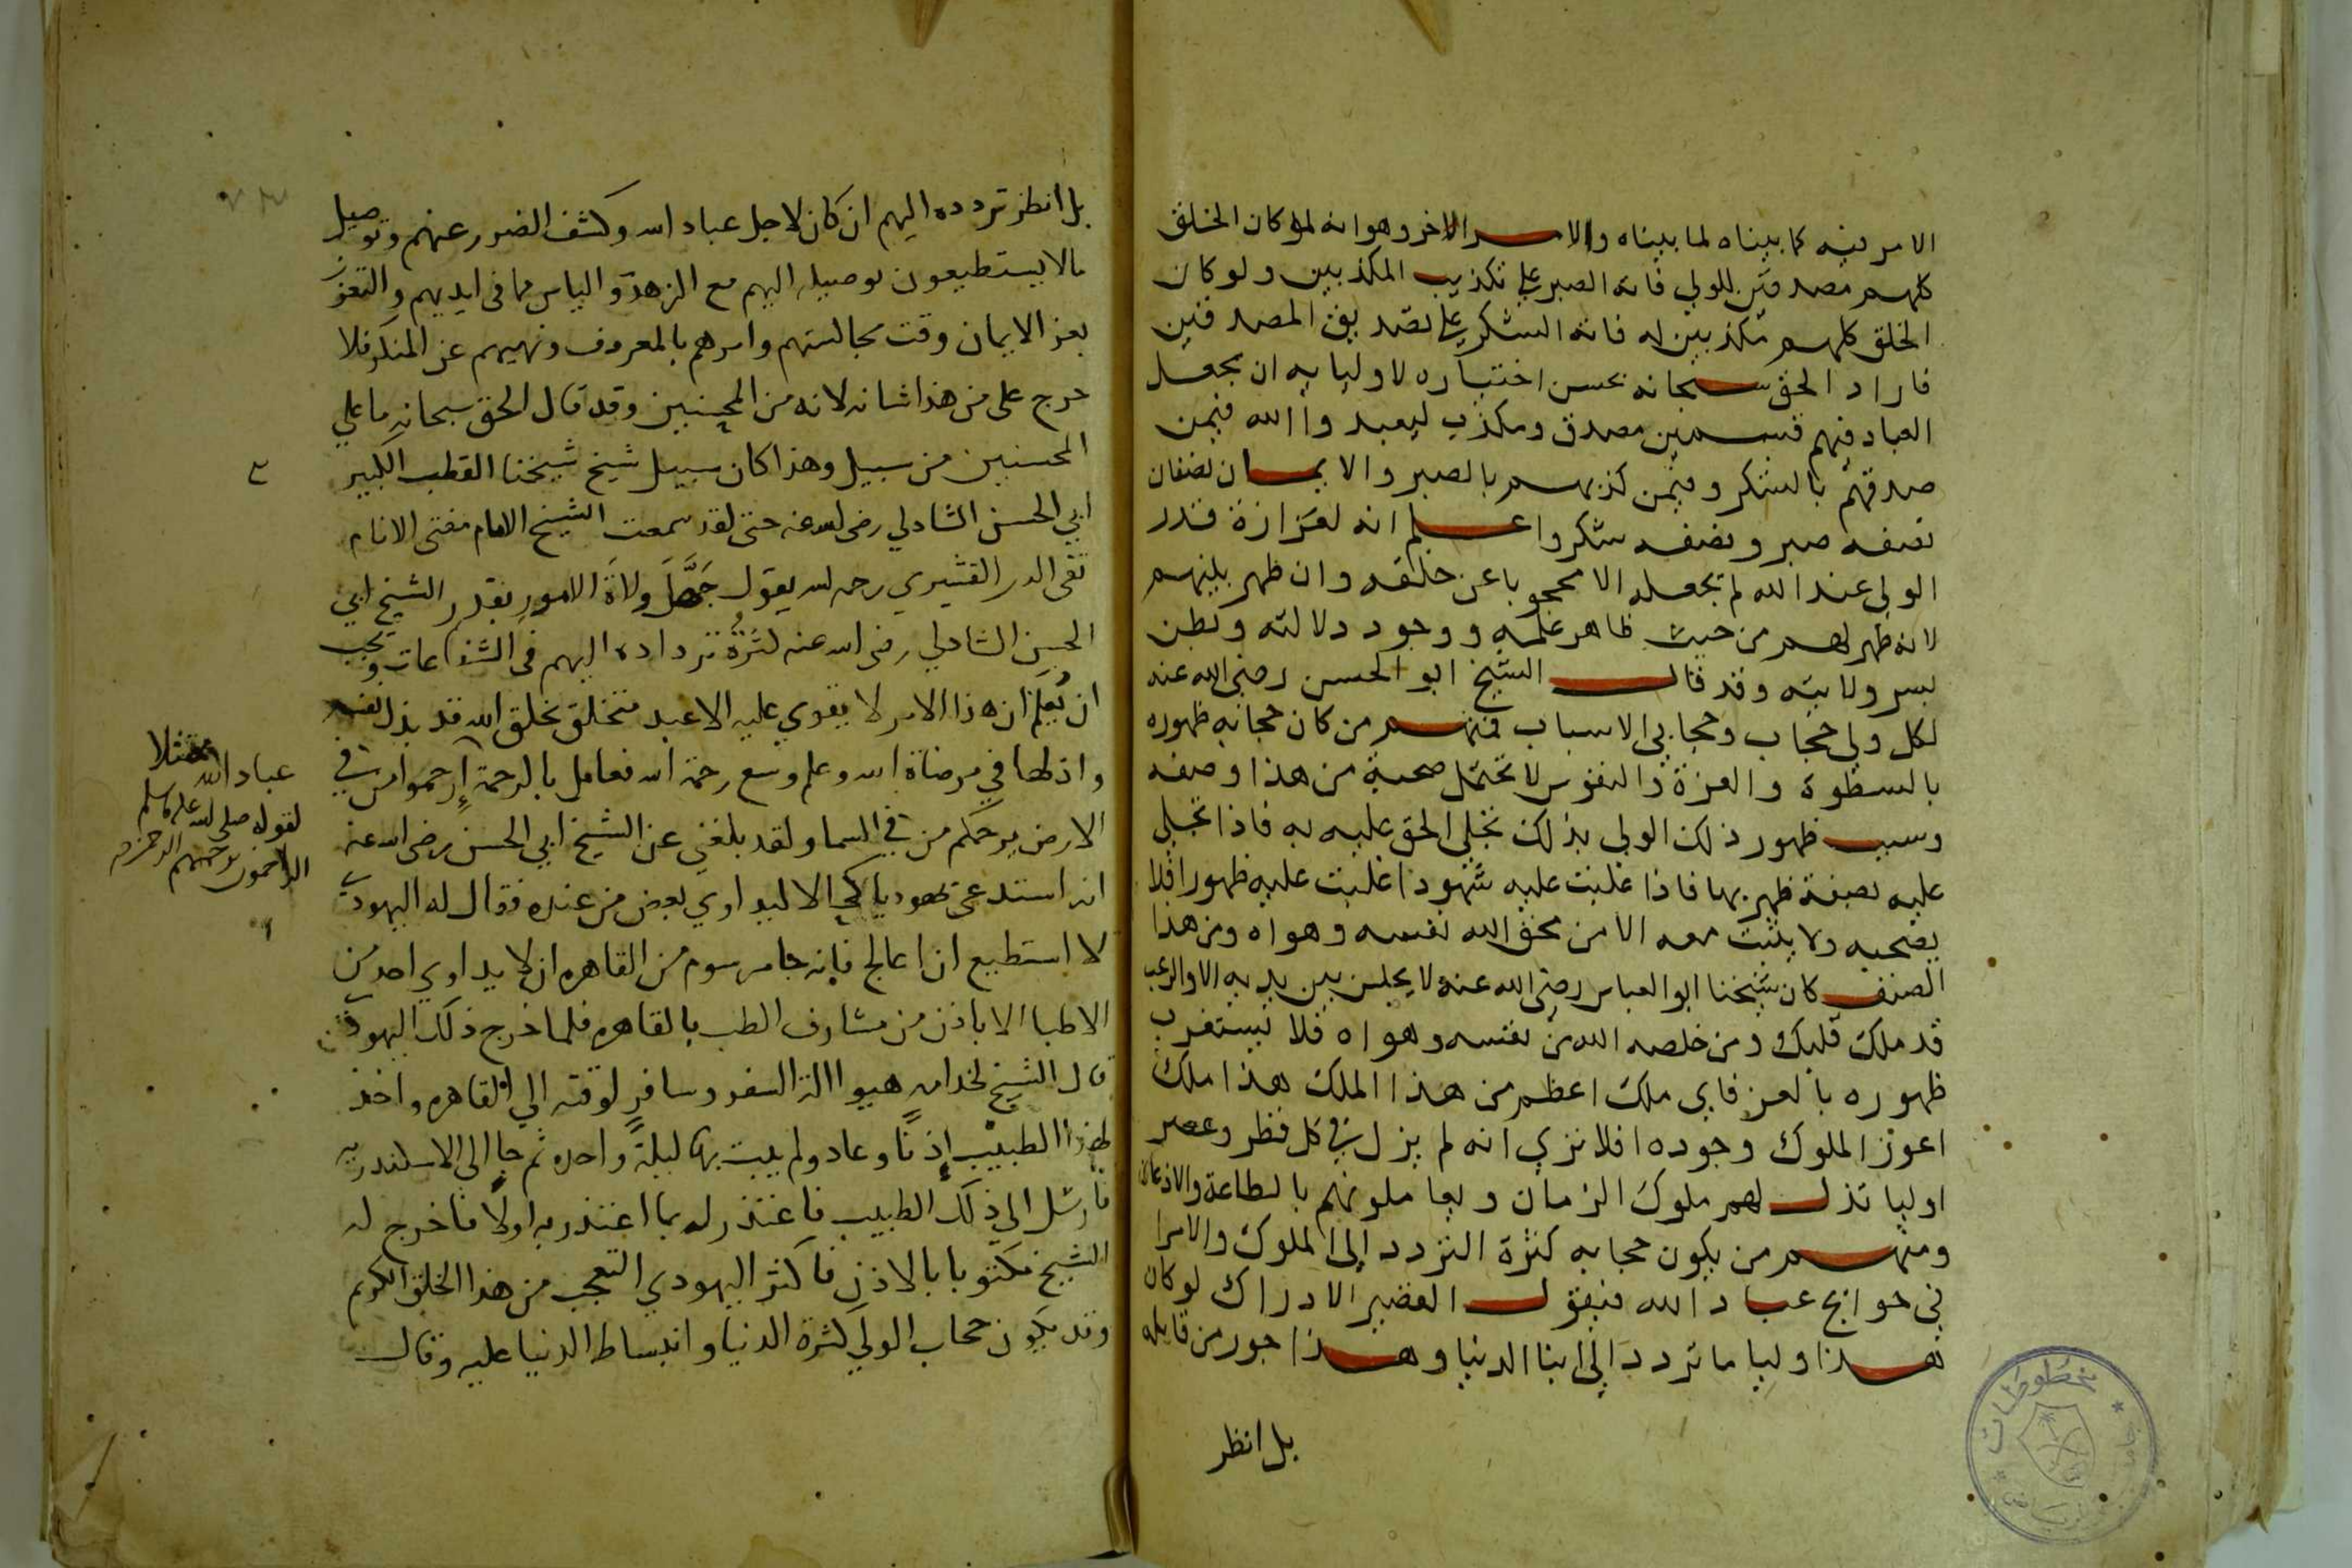 الامر فيه كما بيناه لما بيناه والامر الاخر وهو انه لو كان الخلق
كلهم مصدقين للولي فاته الصبر على تكذيب المكذبين ولو كان
الخلق كلهم مكذبين له فاته الشكر على تصديق المصدقين
فاراد الحق سبحانه بحسن اختياره لاوليايه ان يجعل
العباد فيهم قسمين مصدق ومكذب ليعبدوا الله فيمن
صدقهم بالشكر وفيمن كذبهم بالصبر والايمان نصفان
نصفه صبر ونصفه شكر واعلم انه لعزازة قدر
الولي عند الله لم يجعله الا محجوبا عن خلقه وان ظهر بينهم
لانه ظهر لهم من حيث ظاهر علمه ووجود دلالته وبطن
بسر ولايته وقد قال الشيخ ابو الحسن رضي الله عنه
لكل ولي حجاب وحجابي الاسباب فمنهم من كان حجابه ظهوره
بالسطوة والعزة والنفوس لا تحتمل صحبة من هذا وصفه
وسبب ظهور ذلك الولي بذلك تجلي الحق عليه به فاذا تجلى
عليه بصفة ظهر بها فاذا غلبت عليه شهودا غلبت عليه ظهورا فلا
يصحبه ولا يثبت معه الا من محق الله نفسه وهواه ومن هذا
الصنف كان شيخنا ابو العباس رضي الله عنه لا يجلس بين يديه الا والرعب
قد ملك قلبك ومن خلصه الله من نفسه وهواه فلا تستغرب
ظهوره بالعز فاي ملك اعظم من هذا الملك هذا ملك
اعوز الملوك وجوده افلا تري انه لم يزل في كل قطر وعصر
اوليا تذل لهم ملوك الزمان ويعاملونهم بالطاعة والاذعان
ومنهم من يكون حجابه كثرة التردد الى الملوك والامرا
في حوايج عباد الله فيقول القصير الادراك لو كان
هذا وليا ما تردد الى ابنا الدنيا وهذا جور من قايله
بل انظر
بل انظر تردده اليهم ان كان لاجل عباد الله وكشف الضرر عنهم وتوصيل
ما لا يستطيعون توصيله اليهم مع الزهد والياس مما في ايديهم والتعزز
بعز الايمان وقت مجالستهم وامرهم بالمعروف ونهيهم عن المنكر فلا
حرج على من هذا شانه لانه من المحسنين وقد قال الحق سبحانه ما على
المحسنين من سبيل وهذا كان سبيل شيخ شيخنا القطب الكبير
ابي الحسن الشادلي رضي الله عنه حتى لقد سمعت الشيخ الامام مفتي الانام
تقي الدين القشيري رحمه الله يقول جهل ولاة الامور بقدر الشيخ ابي
الحسن الشادلي رضي الله عنه لكثرة ترداده اليهم في الشفاعات ويجب
ان يعلم ان هذا الامر لا يقوي عليه الا عبد متخلق بخلق الله قد بذل نفسه
واذلها في مرضاة الله وعلم وسع رحمة الله فعامل بالرحمة ارحموا من في
الارض يرحمكم من في السما ولقد بلغني عن الشيخ ابي الحسن رضي الله عنه
انه استدعى يهوديا كحالا ليداوي بعض من عنده فقال له اليهودي
لا استطيع ان اعالج فانه جا مرسوم من القاهره ان لا يداوي احد من
الاطبا الا باذن من مشارف الطب بالقاهره فلما خرج ذلك اليهودي
قال الشيخ لخدامه هيوا الة السفر وسافر لوقته الي القاهره واخذ
لهذا الطبيب اذنا وعاد ولم يبت بها ليلة واحده ثم جا الى الاسكندريه
فارسل الي ذلك الطبيب فاعتذر له بما اعتذر به اولا فاخرج له
الشيخ مكتوبا بالاذن فاكثر اليهودي التعجب من هذا الخلق الكريم
وقد يكون حجاب الولي كثرة الدنيا وانبساط الدنيا عليه وقال
ممتثلا
عباد الله
لقوله صلى الله عليه وسلم
الراحمون يرحمهم الرحمن
مخطوطات